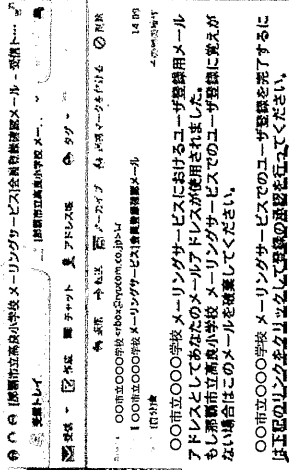 [那覇市立高良小学校 メーリングサービス]会員登録確認メール - 受信ト…
受信トレイ
[那覇市立高良小学校 メー…
受信
作成
チャット
アドレス帳
タグ
返信
転送
アーカイブ
迷惑マークを付ける
削除
〇〇市立〇〇〇学校 <rbox@ryucom.co.jp>
14:09
[〇〇市立〇〇〇学校 メーリングサービス]会員登録確認メール
自分
〇〇市立〇〇〇学校 メーリングサービスにおけるユーザ登録用メール
アドレスとしてあなたのメールアドレスが使用されました。
もし那覇市立高良小学校 メーリングサービスでのユーザ登録に覚えが
ない場合はこのメールを破棄してください。
〇〇市立〇〇〇学校 メーリングサービスでのユーザ登録を完了するに
は下記のリンクをクリックして登録の承認を行ってください。